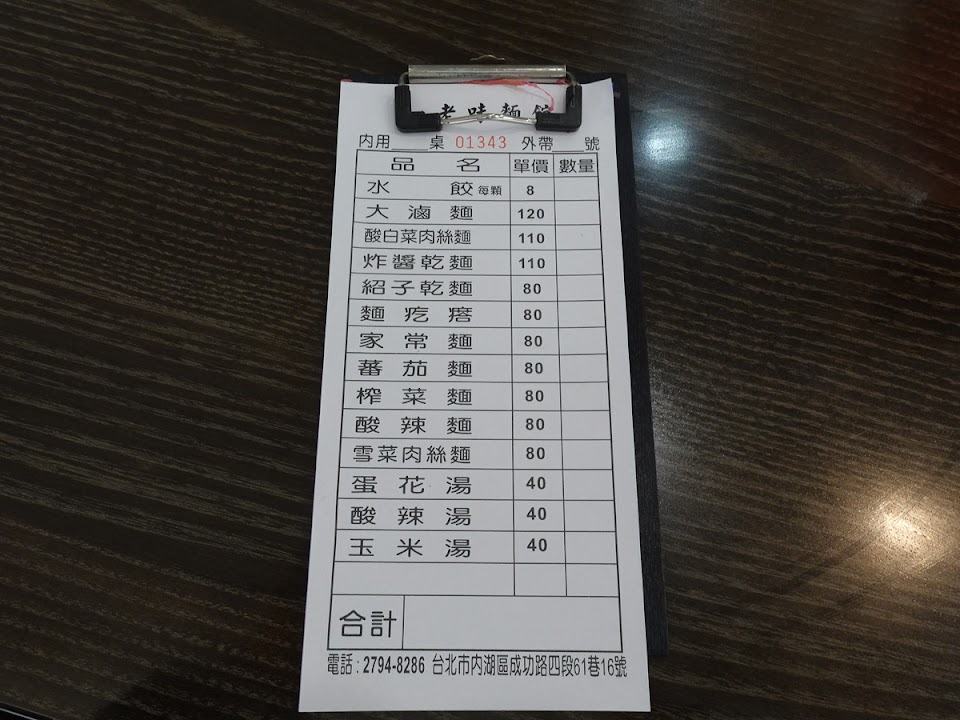 老味麵館
內用____桌 01343 外帶____號
品名 單價 數量
水餃 每顆 8
大滷麵 120
酸白菜肉絲麵 110
炸醬乾麵 110
紹子乾麵 80
麵疙瘩 80
家常麵 80
蕃茄麵 80
榨菜麵 80
酸辣麵 80
雪菜肉絲麵 80
蛋花湯 40
酸辣湯 40
玉米湯 40
合計
電話：2794-8286 台北市內湖區成功路四段61巷16號